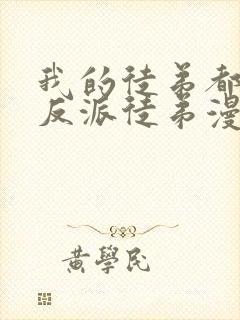 我的徒弟都
反派徒弟漫
黄學民